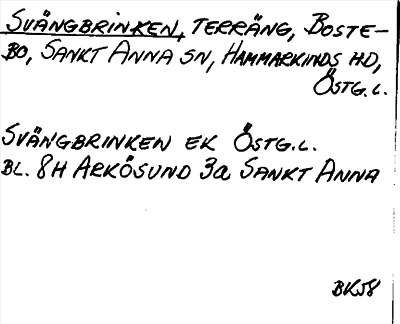 SVÄNGBRINKEN, TERRÄNG, BOSTE-
BO, SANKT ANNA SN, HAMMARKINDS HD,
ÖSTG.L.
SVÄNGBRINKEN EK ÖSTG.L.
BL. 8H ARKÖSUND 3a SANKT ANNA
BK58